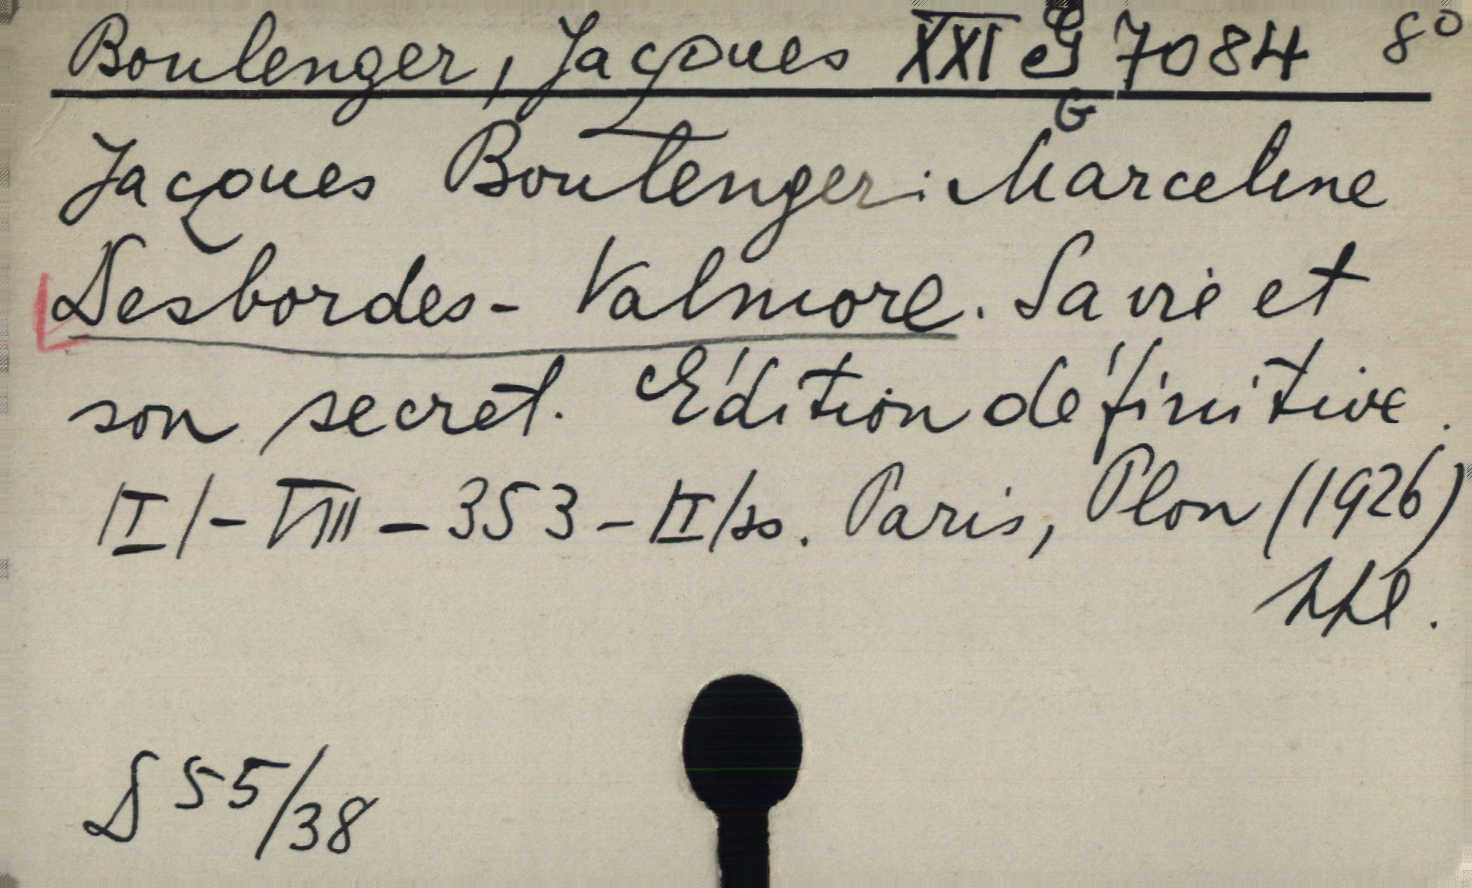 Boulenger, Jacques XXI G 7084 8°
G
Jacques Boulenger: Marceline
Desbordes-Valmore. Sa vie et
son secret. Édition définitive.
/I/-VIII-353-II/ss. Paris, Plon (1926)
S 55/38